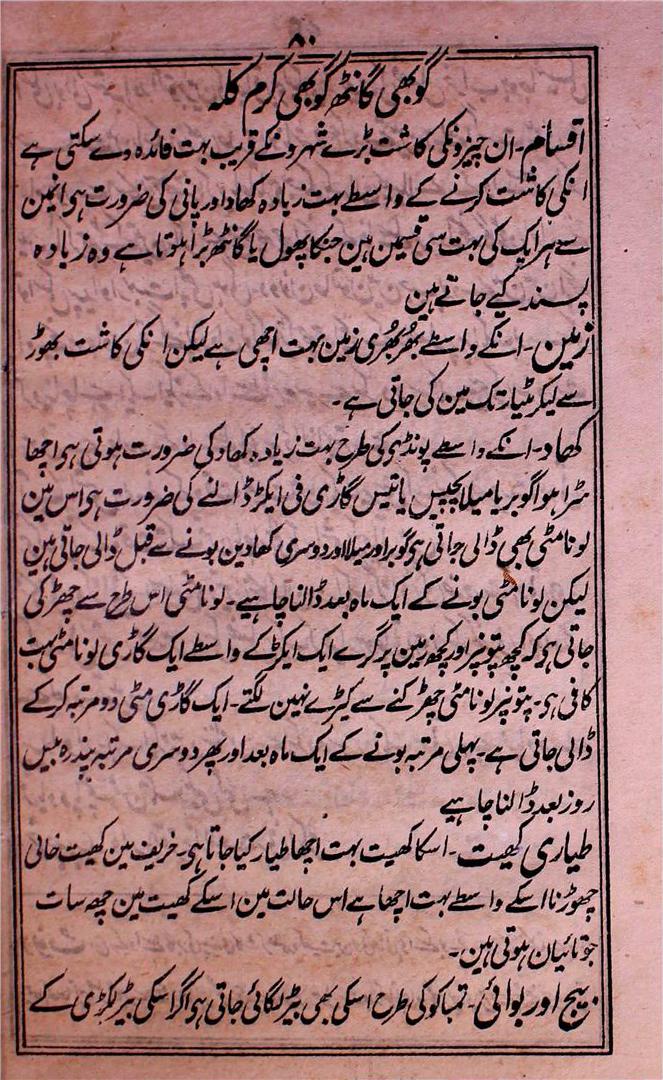 ۸۰
گوبھی گانٹھ گوبھی کرم کلہ
اقسام۔ ان چیزونکی کاشت بڑے شہرونکے قریب بہت فائدہ دے سکتی ہے
انکی کاشت کرنے کے واسطے بہت زیادہ کھاد اور پانی کی ضرورت ہی انمین
سے ہر ایک کی بہت سی قسمین ہین جنکا پھول یا گانٹھ بڑا ہوتا ہے وہ زیادہ
پسند کیے جاتے ہین
زمین۔ انکے واسطے بھُربھُری زمین بہت اچھی ہے لیکن انکی کاشت بھوڑ
سے لیکر مٹیار تک مین کی جاتی ہے۔
کھاد۔ انکے واسطے پونڈہی کی طرح بہت زیادہ کھاد کی ضرورت ہوتی ہی اچھا
سڑا ہوا گوبر یا میلا پچیس یا تیس گاڑی فی ایکڑ ڈالنے کی ضرورت ہی اس مین
لونا مٹی بھی ڈالی جاتی ہی گوبر اور میلا اور دوسری کھادین بونے سے قبل ڈالی جاتی ہین
لیکن لونا مٹی بونے کے ایک ماہ بعد ڈالنا چاہیے۔ لونا مٹی اس طرح سے چھڑکی
جاتی ہی کہ کچھ پتونپر اور کچھ زمین پر گرے ایک ایکڑ کے واسطے ایک گاڑی لونا مٹی بہت
کافی ہی۔ پتونپر لونا مٹی چھڑکنے سے کیڑے نہین لگتے۔ ایک گاڑی مٹی دو مرتبہ کر کے
ڈالی جاتی ہے۔ پہلی مرتبہ بونے کے ایک ماہ بعد اور پھر دوسری مرتبہ پندرہ بیس
روز بعد ڈالنا چاہیے
طیاری کھیت۔ اسکا کھیت بہت اچھا طیار کیا جاتا ہی۔ خریف مین کھیت خالی
چھوڑنا اسکے واسطے بہت اچھا ہے اس حالت مین اسکے کھیت مین چھ سات
جوتائیان ہوتی ہین۔
بیج اور بوائی۔ تمباکو کی طرح اسکی بھی بیڑ لگائی جاتی ہی اگر اسکی بیڑ لکڑی کے